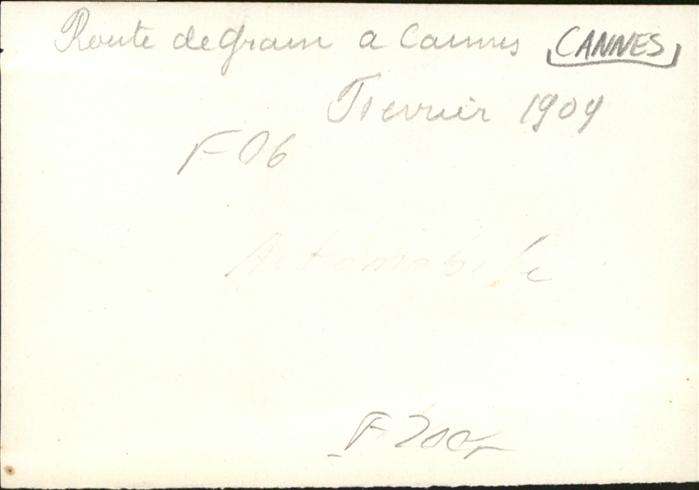 Route de grasse a Cannes CANNES
Fevrier 1909
F 06
Automobile
F 200F